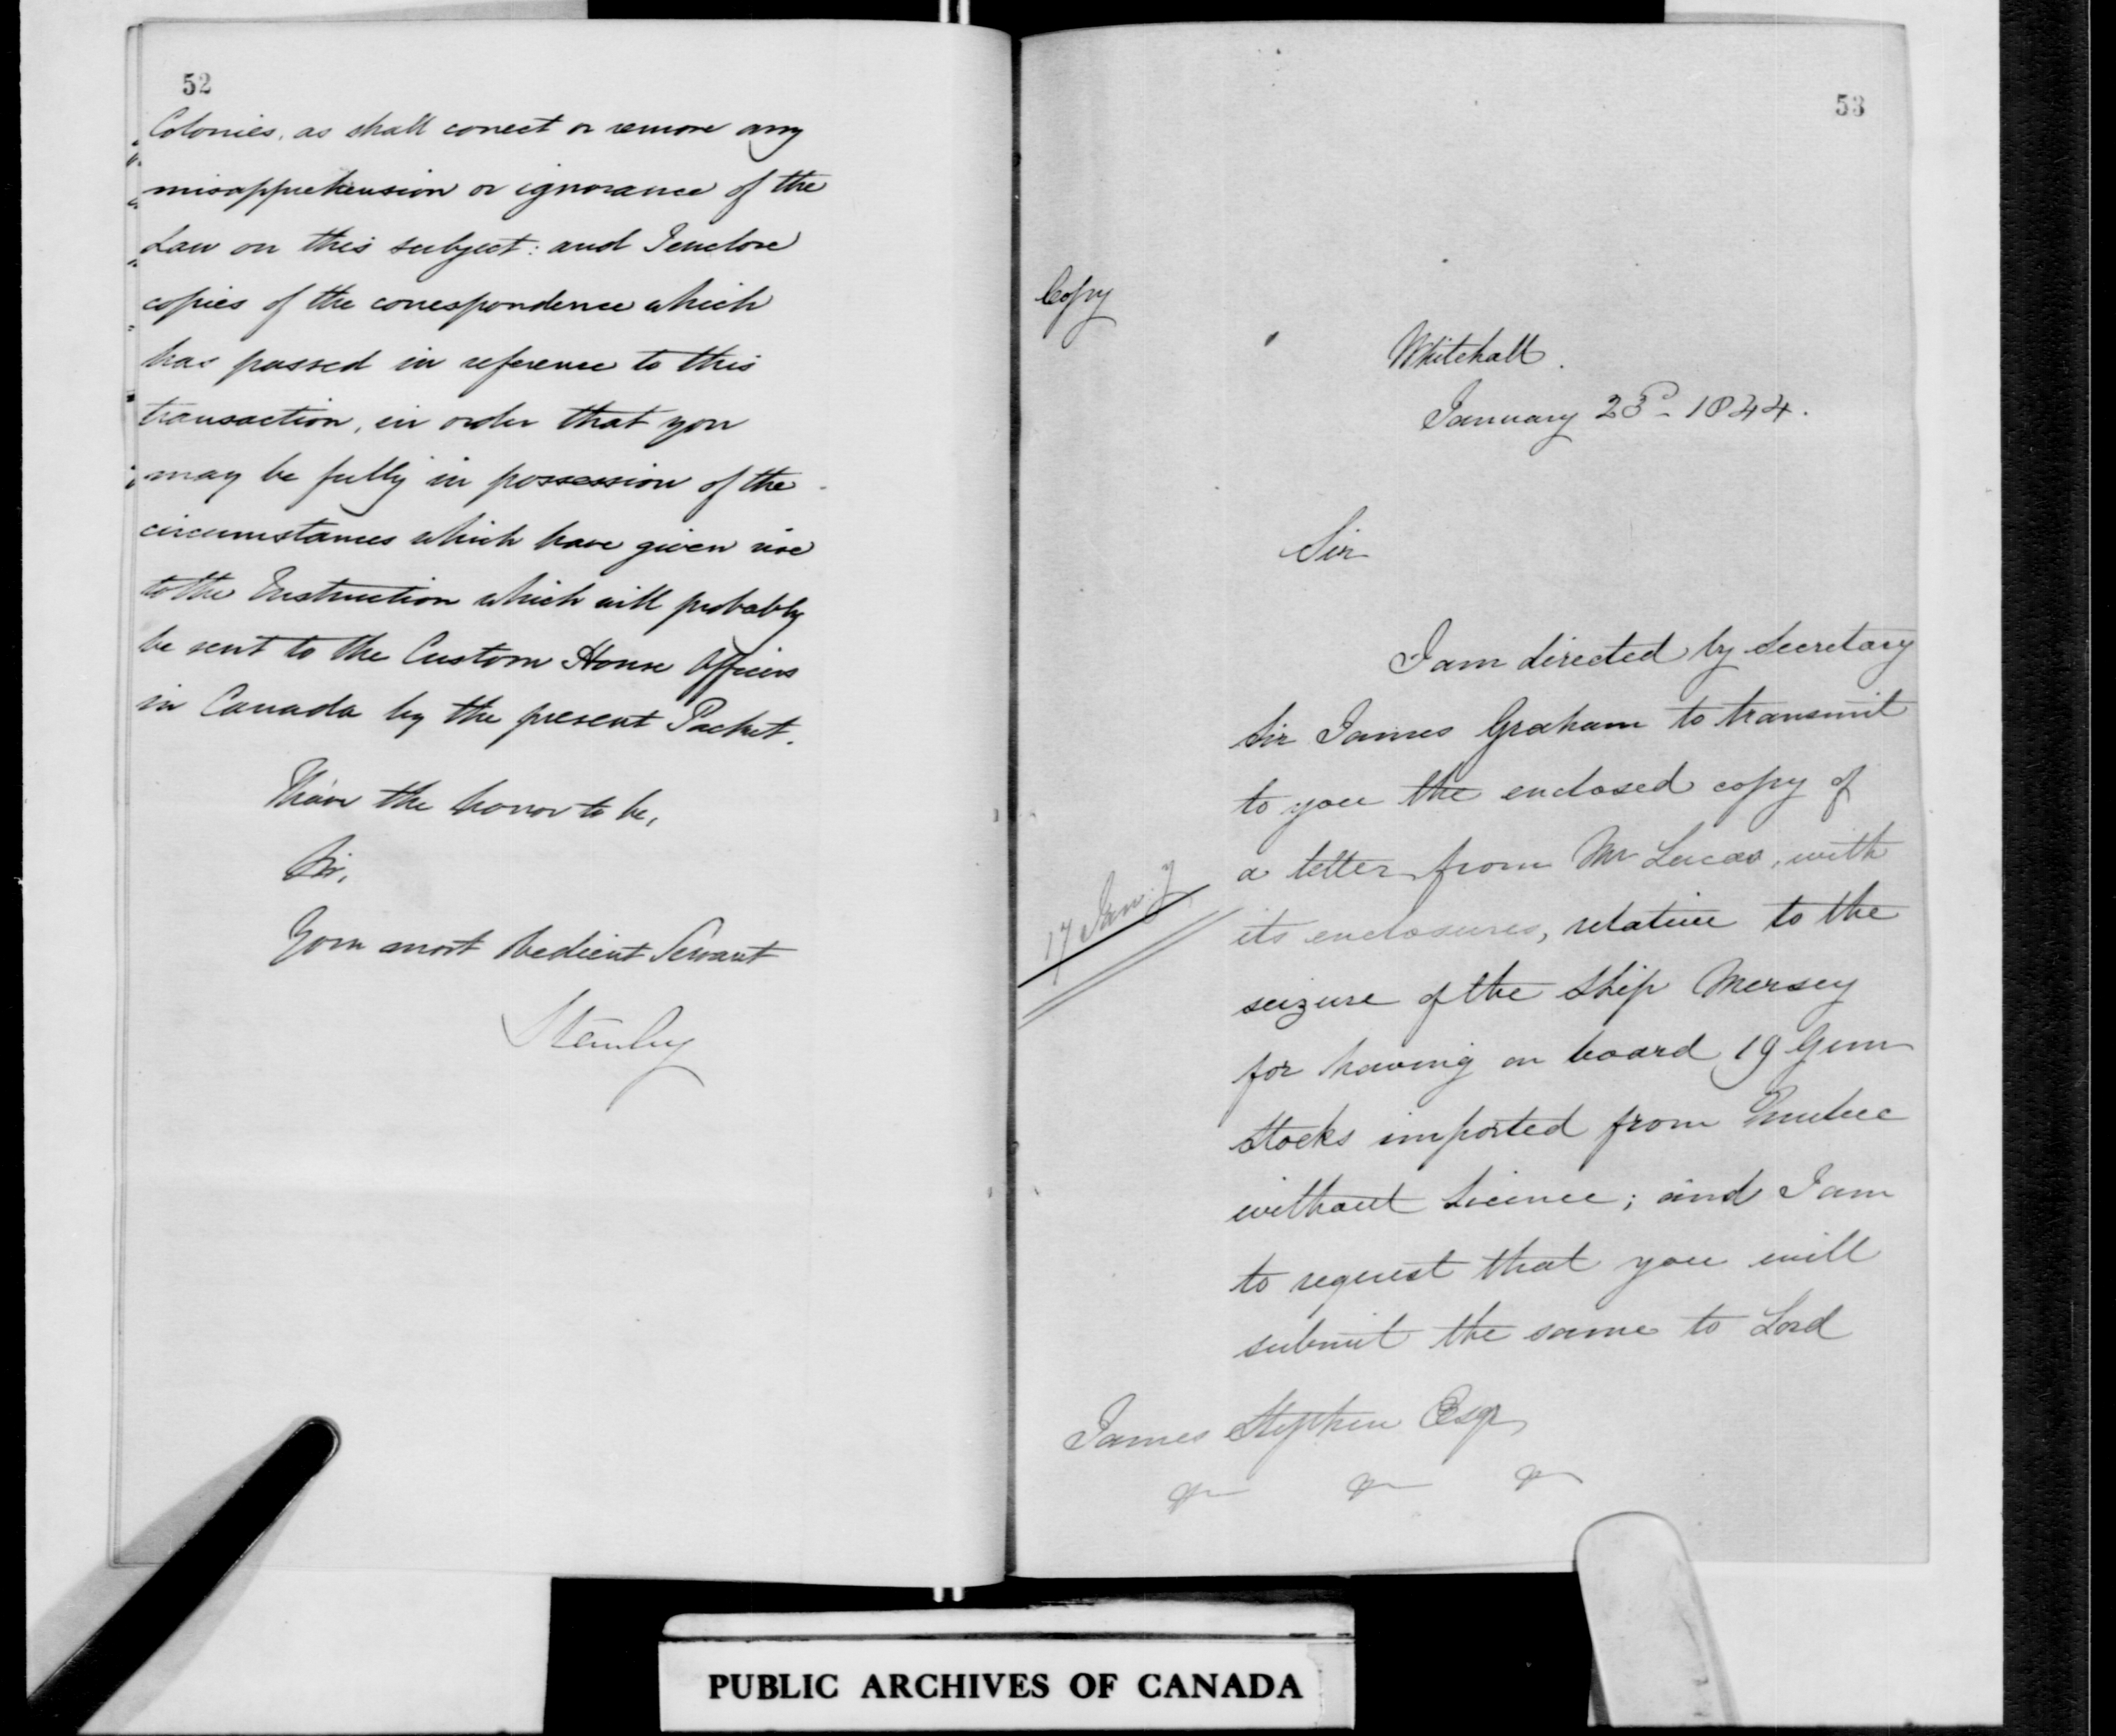 52
Colonies, as shall correct or remove any
misapprehension or ignorance of the
Law on this subject: and I enclose
copies of the correspondence which
has passed in reference to this
transaction, in order that you
may be fully in possession of the
circumstances which have given rise
to the Instruction which will probably
be sent to the Custom House Officers
in Canada by the present Packet.
I have the honor to be,
Sir,
Your most obedient Servant
Stanley
53
Copy
Whitehall.
January 23d 1844.
Sir
I am directed by Secretary
Sir James Graham to transmit
to you the enclosed copy of
a letter from Mr Lucas, with
17 Jany
its enclosures, relative to the
seizure of the Ship Mersey
for having on board 19 Gun
Stocks imported from Quebec
without Licence; and I am
to request that you will
submit the same to Lord
James Stephen Esqr
PUBLIC ARCHIVES OF CANADA